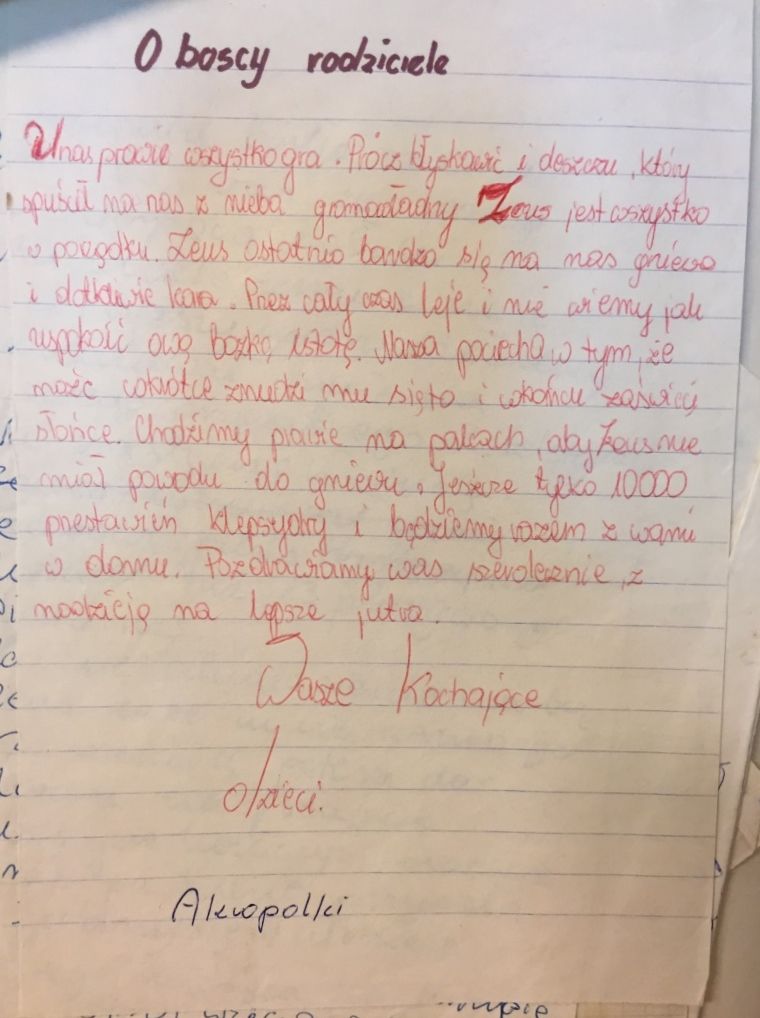 O boscy rodziciele
U nas prawie wszystko gra. Prócz błyskawic i deszczu, który
spuścił na nas z nieba gromowładny Zeus jest wszystko
w porządku. Zeus ostatnio bardzo się na nas gniewa
i dotkliwie kara. Przez cały czas leje i nie wiemy jak
uspokoić ową boską istotę. Nasza pociecha w tym, że
może wkrótce znudzi mu się to i wkońcu zaświeci
słońce. Chodzimy prawie na palcach, aby Zeus nie
miał powodu do gniewu. Jeszcze tylko 10000
przestawień klepsydry i będziemy razem z wami
w domu. Pozdrawiamy was szerdecznie, z
nadzieją na lepsze jutro.
Wasze Kochające
dzieci.
Akropolki